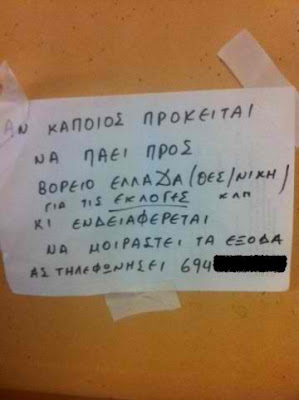 ΑΝ ΚΑΠΟΙΟΣ ΠΡΟΚΕΙΤΑΙ
ΝΑ ΠΑΕΙ ΠΡΟΣ
ΒΟΡΕΙΟ ΕΛΛΑΔΑ (ΘΕΣ/ΝΙΚΗ)
ΓΙΑ ΤΙΣ ΕΚΛΟΓΕΣ ΚΛΠ
ΚΙ ΕΝΔΕΙΑΦΕΡΕΤΑΙ
ΝΑ ΜΟΙΡΑΣΤΕΙ ΤΑ ΕΞΟΔΑ
ΑΣ ΤΗΛΕΦΩΝΗΣΕΙ 694